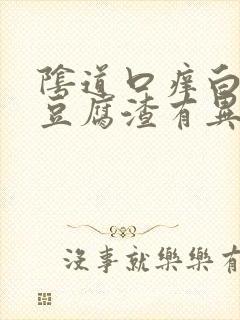 陰道口痒白
豆腐渣有異
沒事就樂樂有